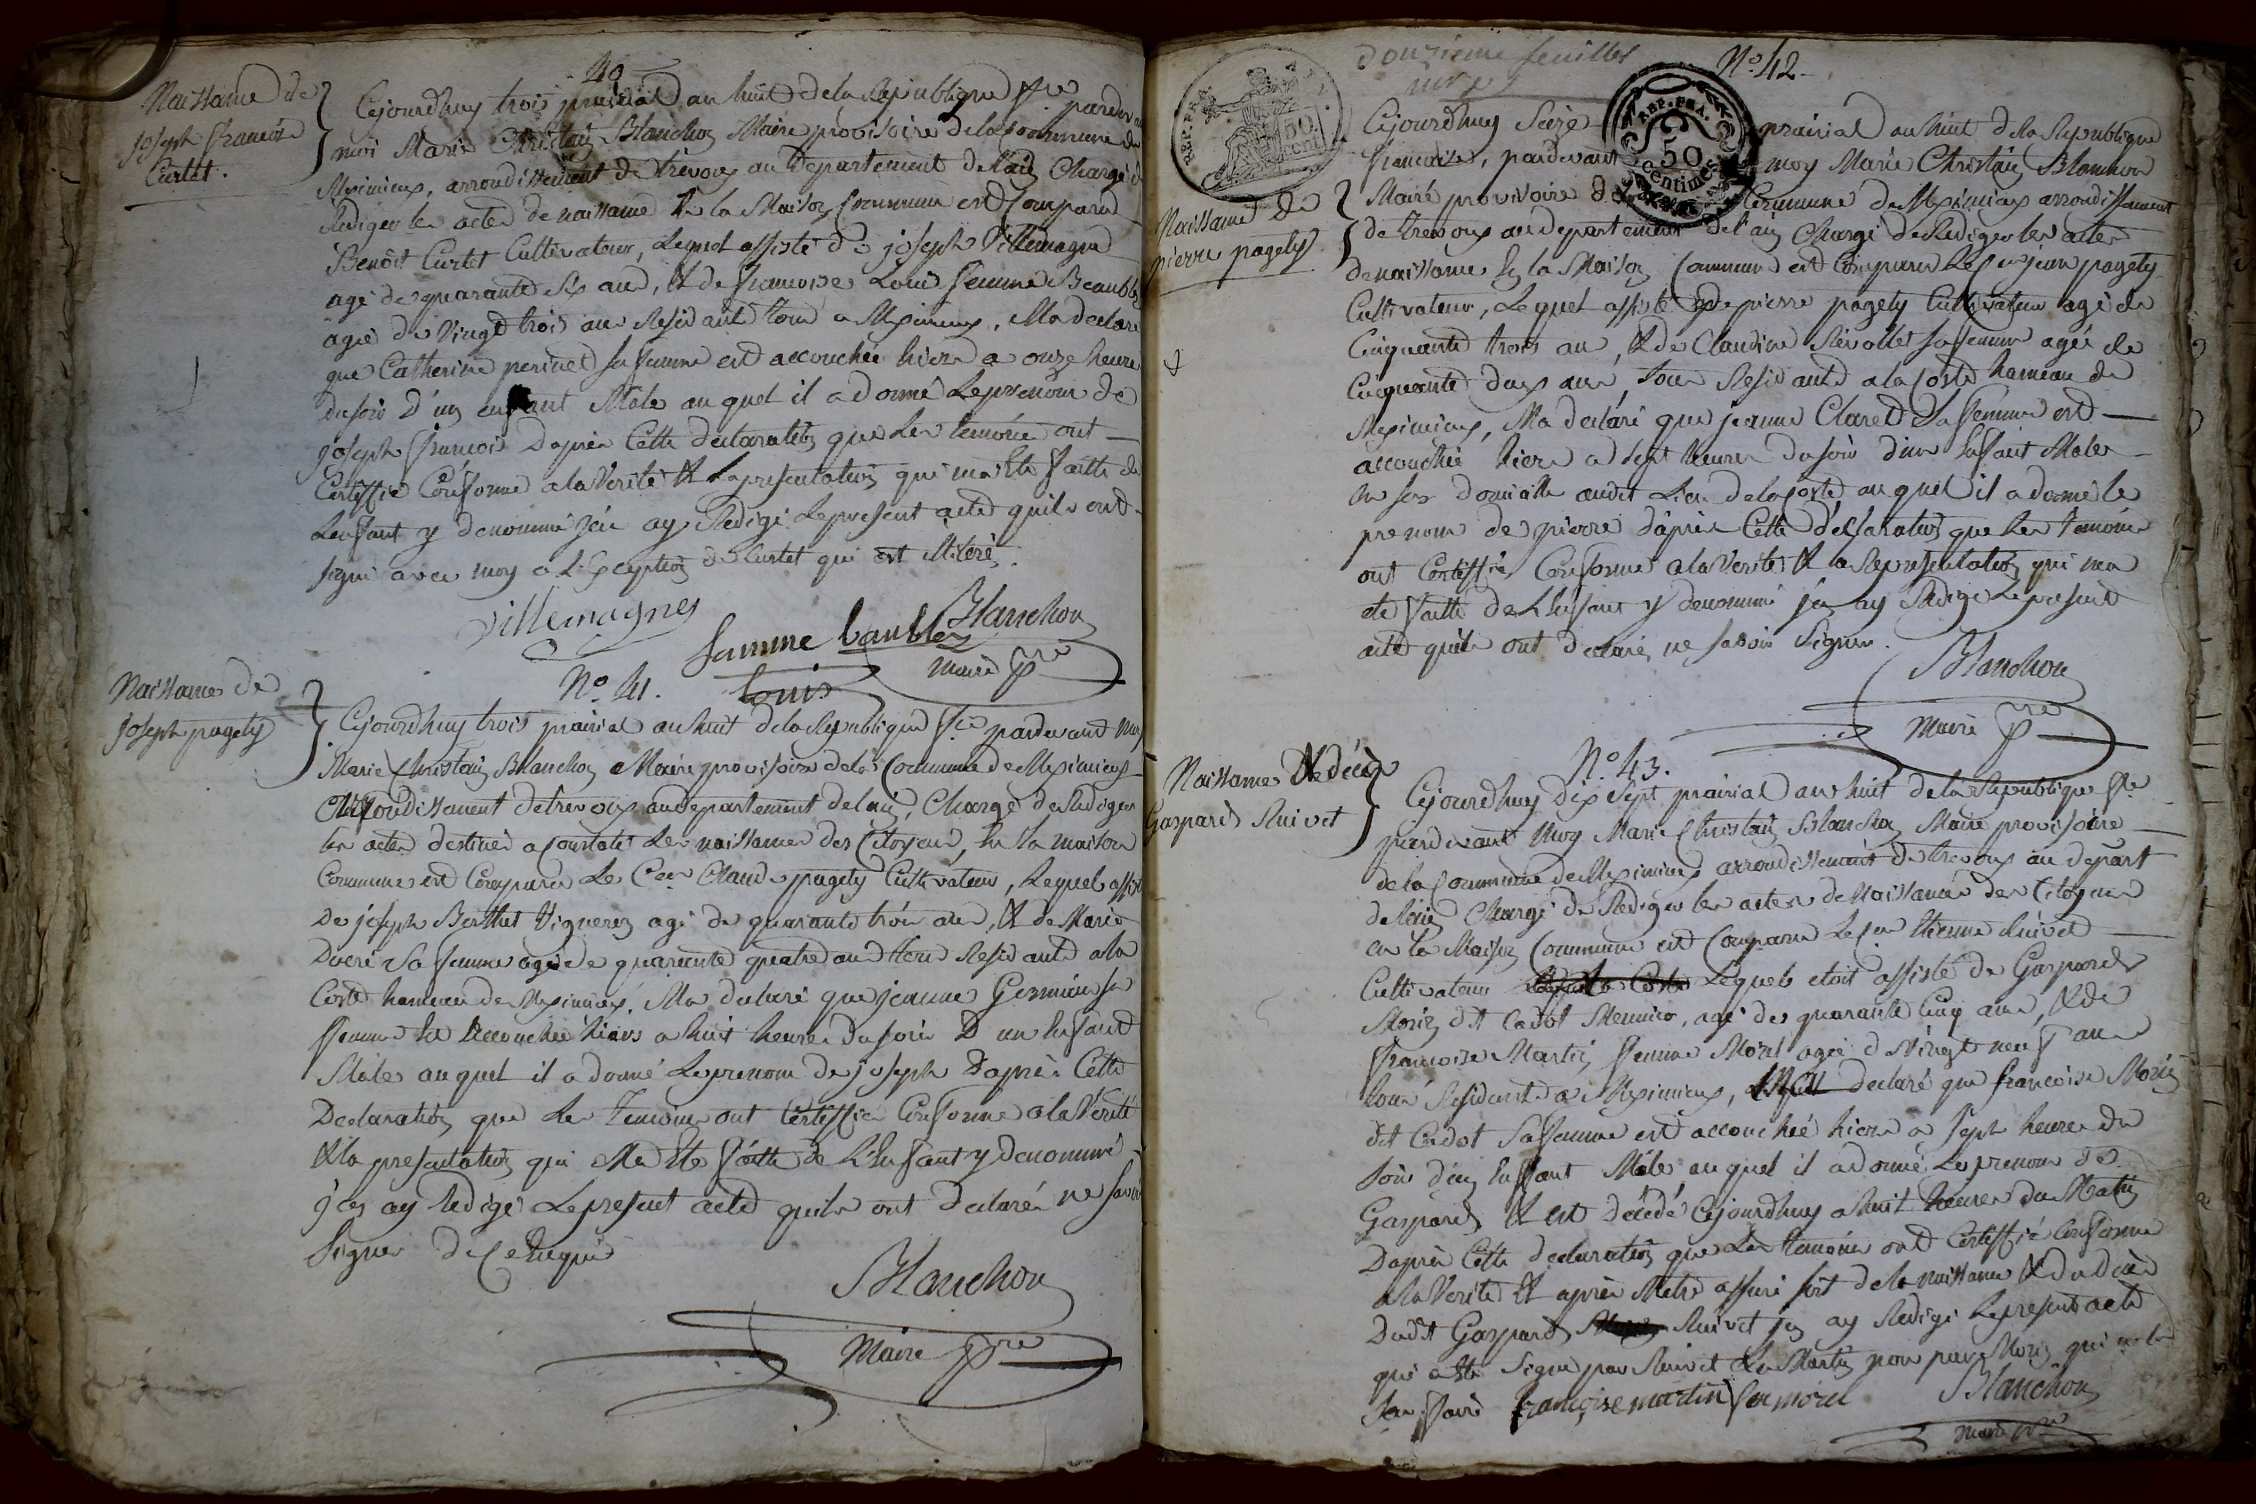 40
Naissance de
joseph francois
Curtet.
Cejourdhuy trois prairial an huit de la Republique fse pardevant
moi Marie Christain Blanchon Maire provisoire de la Commune de
Meximieux, arrondissement de trevoux au Departement de l'ain Chargé de
Rediger les actes de naissance En la Maison Commune est Comparu
Benoit Curtet Cultivateur, Lequel assisté de joseph Villemagne
agé de quarante six ans, Et de francoise Louis femme Beaublez
agée de Vingt trois ans Residants tous a Meximieux, Ma declaré
que Catherine perinet sa femme est accouchée hiere a onze heure
du soir D'un enfant Mâle au quel il a donné Le prenom de
joseph francois Daprès Cette declaration que Les temoins ont
Certiffié Conforme a la Verité Et La presentation qui ma Eté faitte de
Lenfant y denommé jén ay Redigé Le present acte quils ont
signé avec moy a L'Exception de Curtet qui est illiteré.
Villemagnes
Blanchon
famme baublez
louis
Maire pre
No 41.
Naissance de
Joseph pagety
Cejourdhuy trois prairial an huit de la Republique fse pardevant moy
Marie Christain Blanchon Maire provisoire de la Commune de Meximieux
Arrondissement de trevoux au departement de lain, Chargé de Rediger
les actes destinés a Constater Les naissances des Citoyens, En la maison
Commune est Comparu Le Cen Claude pagety Cultivateur, Lequel assisté
De joseph Berthet Vigneron agé de quarante trois ans, Et de Marie
Ducré Sa femme agée de quarante quatre ans tous Residants a la
Coste hameau de Meximieux. Ma declaré que jeanne Germain sa
femme Est Accouchée hiere a huit heure du soir D'un Enfant
Mâle au quel il a donné Le prenom de joseph Daprès Cette
Declaration que Les Temoins ont Certiffié Conforme a la Vérité
Et la presentation qui Ma Eté faitte de L'Enfant y denommé
j'en ay Redigé Le present acte quils ont declaré ne savoir
Signer de Ce Requis
Blanchon
Maire pre
Douzieme feuillet
No 42.
REP. FRA.
50
centimes
Naissance de
pierre pagety
Cejourdhuy Seize prairial an huit de la Republique
francaise, pardevant moy Marie Christain Blanchon
Maire provisoire de la Commune de Meximieux arrondissement
de trevoux au departement de l'ain Chargé de Rediger les actes
de naissance En la Maison Commune est Comparu Le Cen jean pagety
Cultivateur, Lequel assisté de pierre pagety Cultivateur agé de
Cinquante trois an, Et de Claudine Revollet sa femme agée de
Cinquante deux ans, tous Residants a la Coste hameau de
Meximieux, Ma declaré que jeanne Claret Sa femme est
accouchée hiere a sept heures du soir d'un Enfant Mâle
en son domicille audit Lieu de la Coste au quel il a donné le
prenom de pierre d'après Cette déclaration que Les Temoins
ont Certiffié Conforme a la Verité Et la Representation qui ma
eté faitte de L'Enfant y denommé jen ay Redigé Le present
acte quils ont declaré ne savoir Signer.
Blanchon
Maire pre
No. 43.
Naissance Et décè de
Gaspard Ruivet
Cejourdhuy Dix Sept prairial an huit de la Republique fse
pardevant Moy Marie Christain Blanchon Maire provisoire
de la Commune de Meximieux arrondissement de trevoux au depart
de l'ain Chargé de Rediger les actes de Naissance des Citoyens
en la Maison Commune est Comparu Le Cen Etienne Ruivet
Cultivateur Lequel etoit assisté de Gaspard
Morin dit Cadot Menuier, agé de quarante Cinq ans, Et de
francoise Martin femme Morel agée de Vingt neuf ans
tous Residants a Meximieux, declaré que francoise Morin
dit Cadot Sa femme est accouchée hiere a sept heures du
soir d'un Enfant Mâle au quel il a donné Le prenom de
Gaspard Et est décédé Cejourdhuy a huit heures du Matin
Daprès Cette declaration que Les temoins ont Certiffié Conforme
a la Verité Et après M'etre assuré soit de la naissance Et du décès
Dudit Gaspard Ruivet jen ay Redigé Le present acte
qui a Eté Signé par Ruivet La Martin non par Morin qui ne la
Seu faire françoise martin fem morel Blanchon
Maire pre